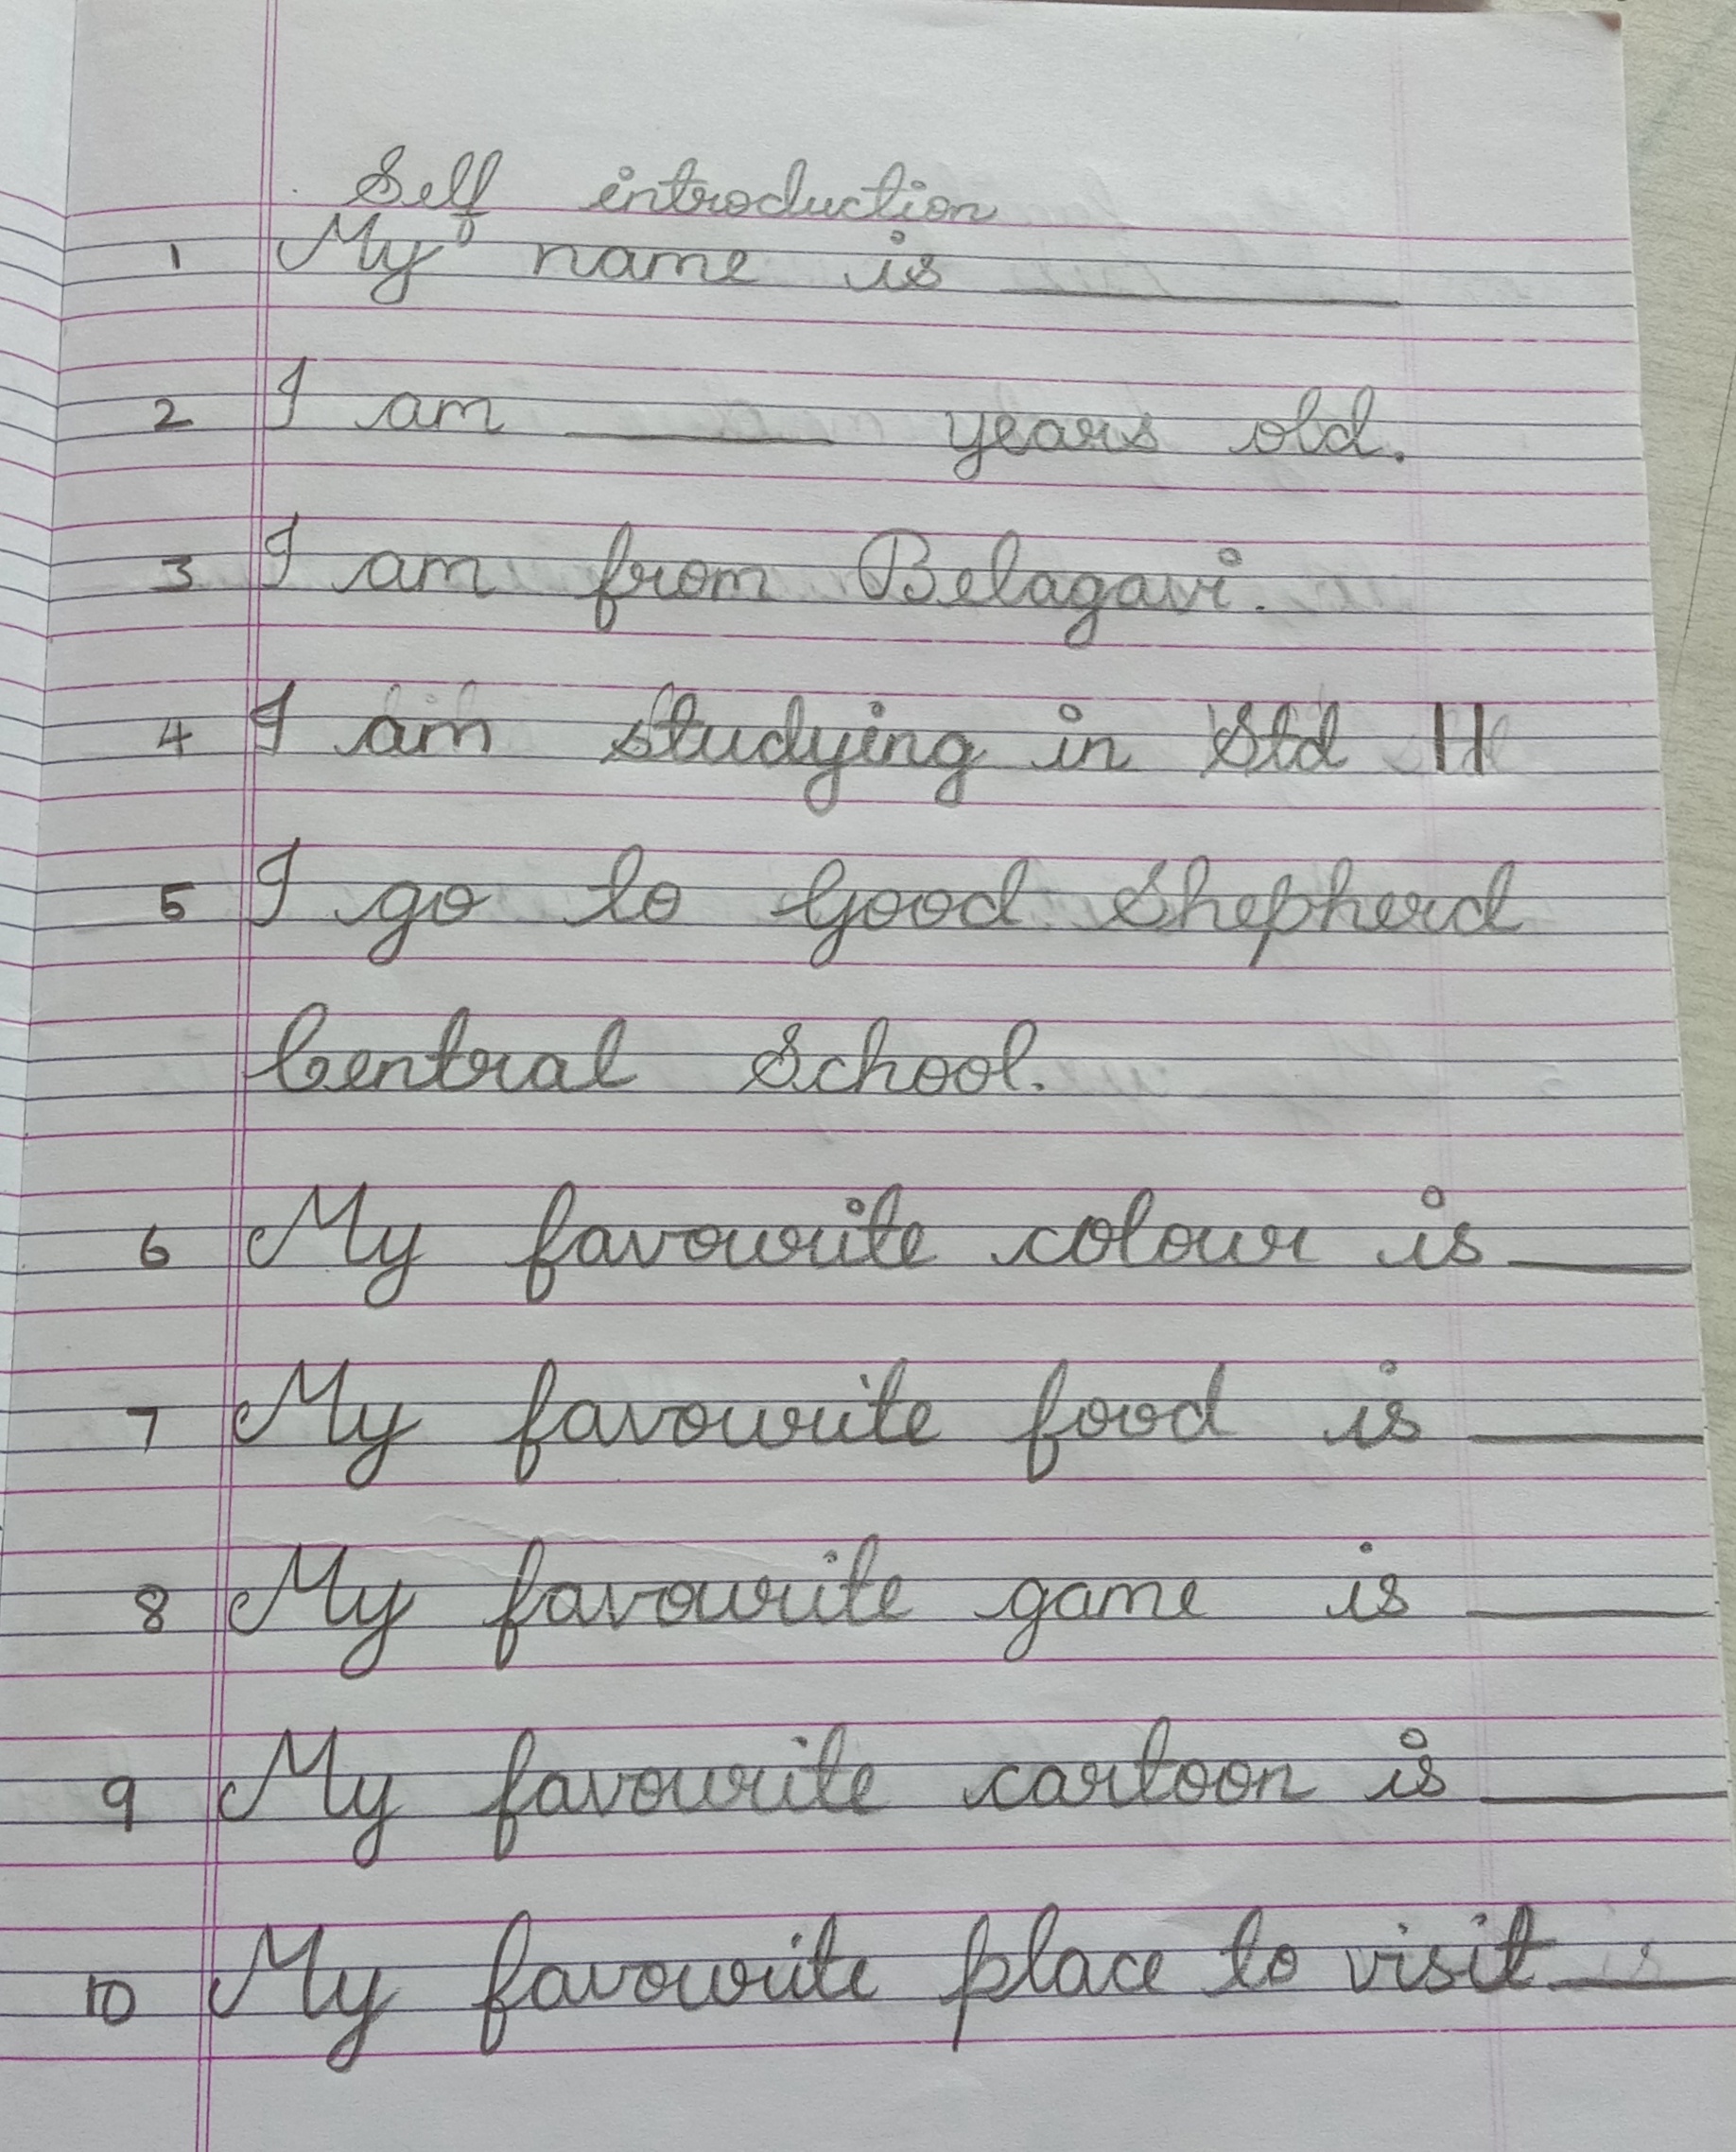 Self introduction
1 My name is ________
2 I am ______ years old.
3 I am from Belagavi.
4 I am studying in Std II
5 I go to Good Shepherd
Central School.
6 My favourite colour is ____
7 My favourite food is ____
8 My favourite game is ____
9 My favourite cartoon is ____
10 My favourite place to visit ____